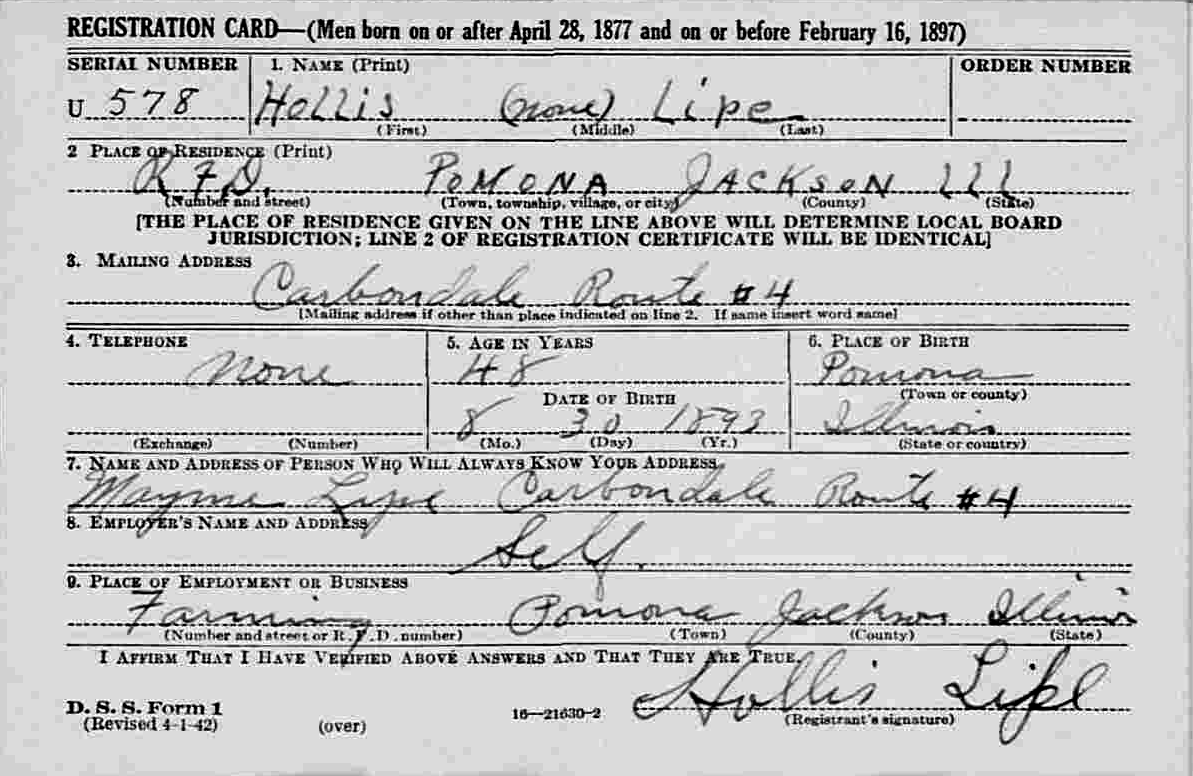 REGISTRATION CARD—(Men born on or after April 28, 1877 and on or before February 16, 1897)
SERIAL NUMBER 1. NAME (Print) ORDER NUMBER
U 578 Hollis (none) Lipe
(First) (Middle) (Last)
2 PLACE OF RESIDENCE (Print)
R.F.D. POMONA JACKSON ILL
(Number and street) (Town, township, village, or city) (County) (State)
[THE PLACE OF RESIDENCE GIVEN ON THE LINE ABOVE WILL DETERMINE LOCAL BOARD
JURISDICTION; LINE 2 OF REGISTRATION CERTIFICATE WILL BE IDENTICAL]
3. MAILING ADDRESS
Carbondale Route #4
[Mailing address if other than place indicated on line 2. If same insert word same]
4. TELEPHONE 5. AGE IN YEARS 6. PLACE OF BIRTH
None 48 Pomona
DATE OF BIRTH (Town or county)
8 30 1893 Illinois
(Exchange) (Number) (Mo.) (Day) (Yr.) (State or country)
7. NAME AND ADDRESS OF PERSON WHO WILL ALWAYS KNOW YOUR ADDRESS
Mayme Lipe Carbondale Route #4
8. EMPLOYER'S NAME AND ADDRESS
Self.
9. PLACE OF EMPLOYMENT OR BUSINESS
Farming Pomona Jackson Illinois
(Number and street or R. F. D. number) (Town) (County) (State)
I AFFIRM THAT I HAVE VERIFIED ABOVE ANSWERS AND THAT THEY ARE TRUE.
Hollis Lipe
D. S. S. Form 1
(Revised 4-1-42) (over) 16—21630-2 (Registrant's signature)